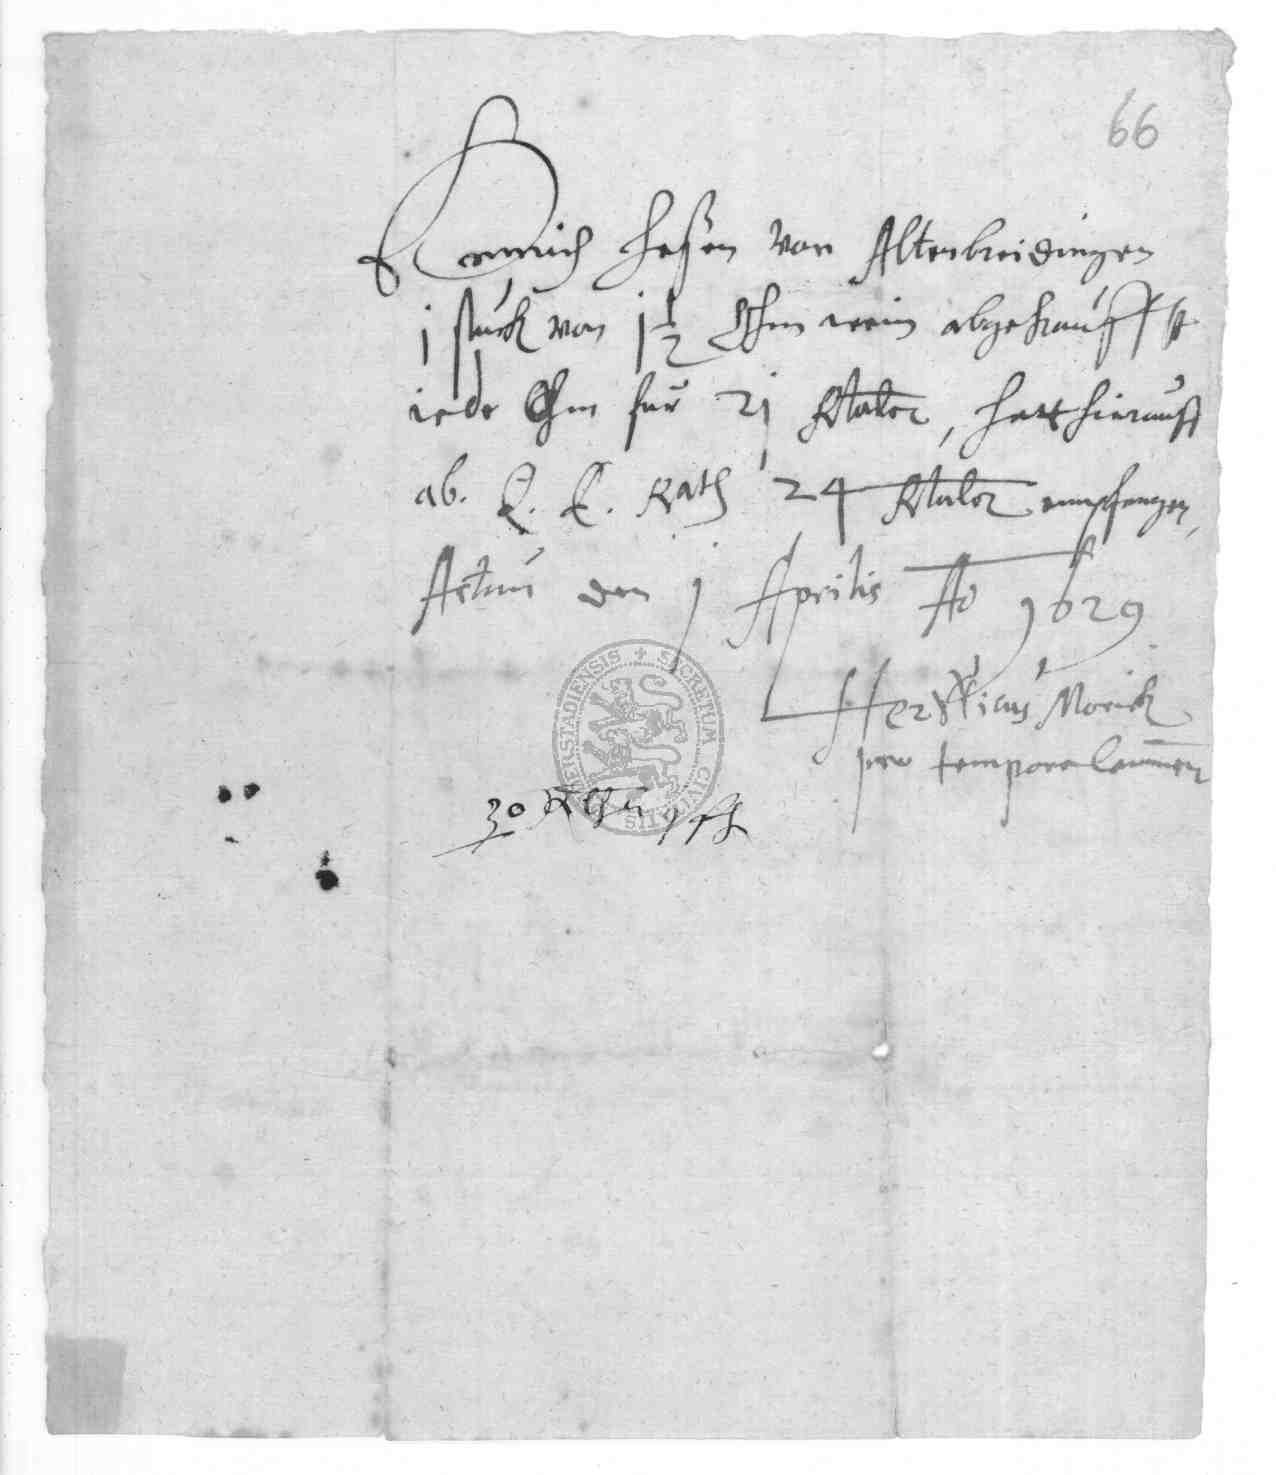 66
Henrich Hesen von Altenbreidingen
j stück von j 1/2 Ohm wein abgekaufft
iede Ohm für 2j Rtaler, hatt hierauff
ab. E. E. Rath 24 Rtaler empfangen,
Actum den j Aprilis Ao 1629
Henricus Morick
pro tempore
SECRETUM CIVITATIS
30